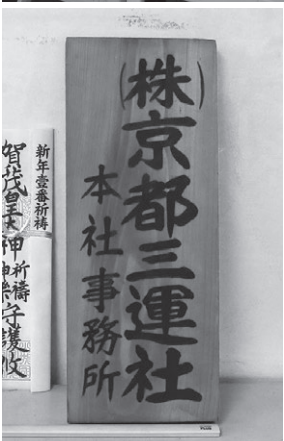 (株)京都三運社
本社事務所
新年壹番祈祷
賀茂皇大神
祈祷
神樂守護攸